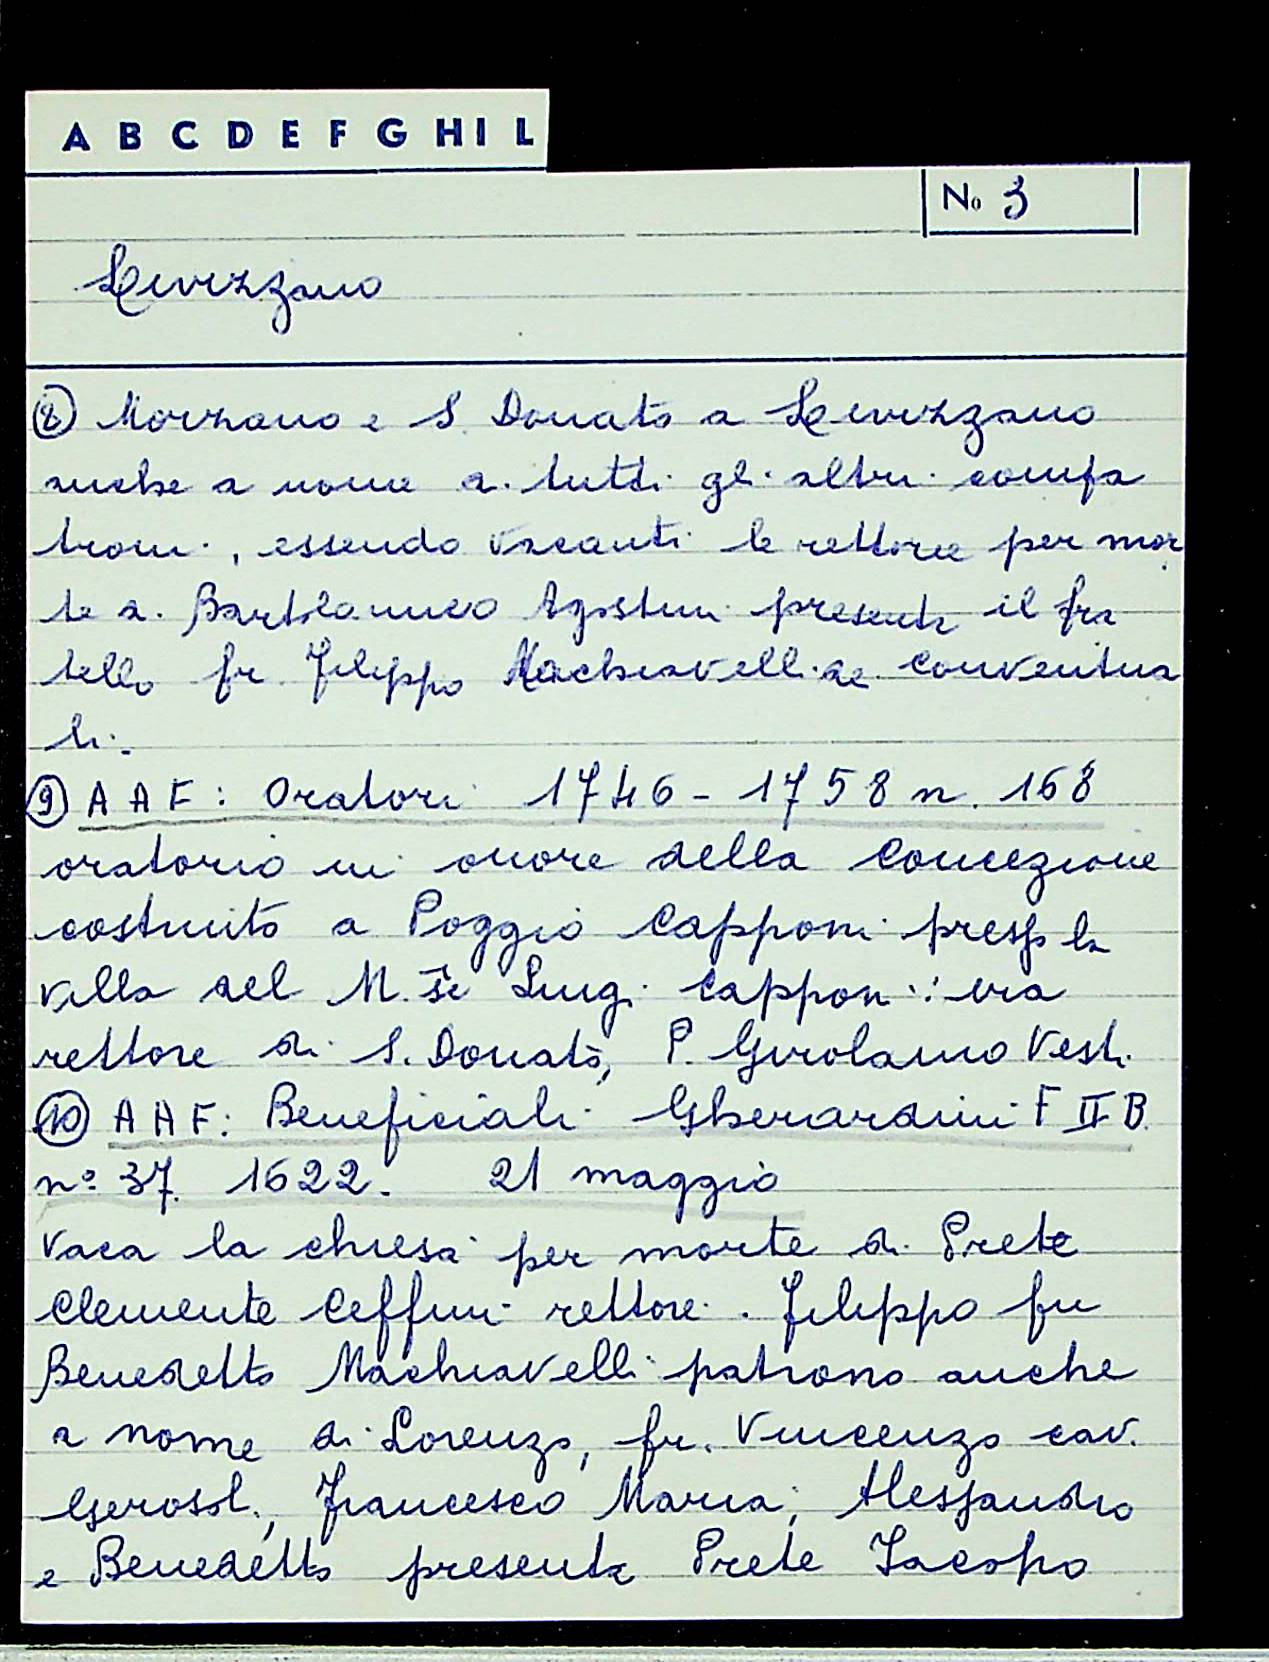 A B C D E F G HI L
No 3
Livizzano
8 Morzano e S. Donato a Livizzano
anche a nome di tutti gli altri compa
troni, essendo vacanti le rettorie per mor
te di Bartolommeo Agostini presenta il fra
tello fr. Filippo Machiavelli dei Conventua
li.
9 AAF: Oratori 1746-1758 n. 168
oratorio in onore della Concezione
costruito a Poggio Capponi presso la
villa del M.se Luigi Capponi: era
rettore di S. Donato, P. Girolamo Vesti.
10 AAF: Beneficiali Gherardini F II B.
nº 37. 1622. 21 maggio
Vaca la chiesa per morte di Prete
Clemente Ceffini rettore. Filippo fu
Benedetto Machiavelli patrono anche
a nome di Lorenzo, fr. Vincenzo cav.
Gerosol., Francesco Maria, Alessandro
e Benedetto presenta Prete Jacopo